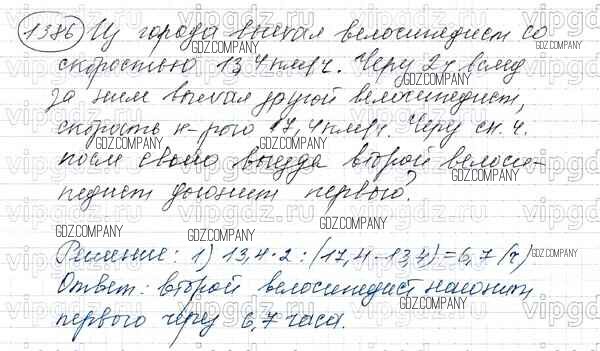 1386 Из города выехал велосипедист со
скоростью 13,4 км/ч. Через 2 ч вслед
за ним выехал другой велосипедист,
скорость к-рого 17,4 км/ч. Через ск. ч.
после своего выезда второй велоси-
педист догонит первого?
Решение: 1) 13,4·2:(17,4-13,4)=6,7(ч)
Ответ: второй велосипедист нагонит
первого через 6,7 часа.